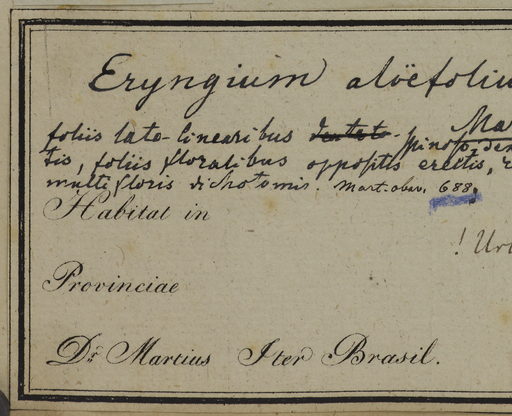 Eryngium aloëfoliu
Mar
foliis lato-linearibus spinos. den
tis, foliis floralibus oppositis erectis,
multifloris dichotomis. Mart. obs. 688.
Habitat in
! Urb
Provinciae
Dr. Martius Iter Brasil.